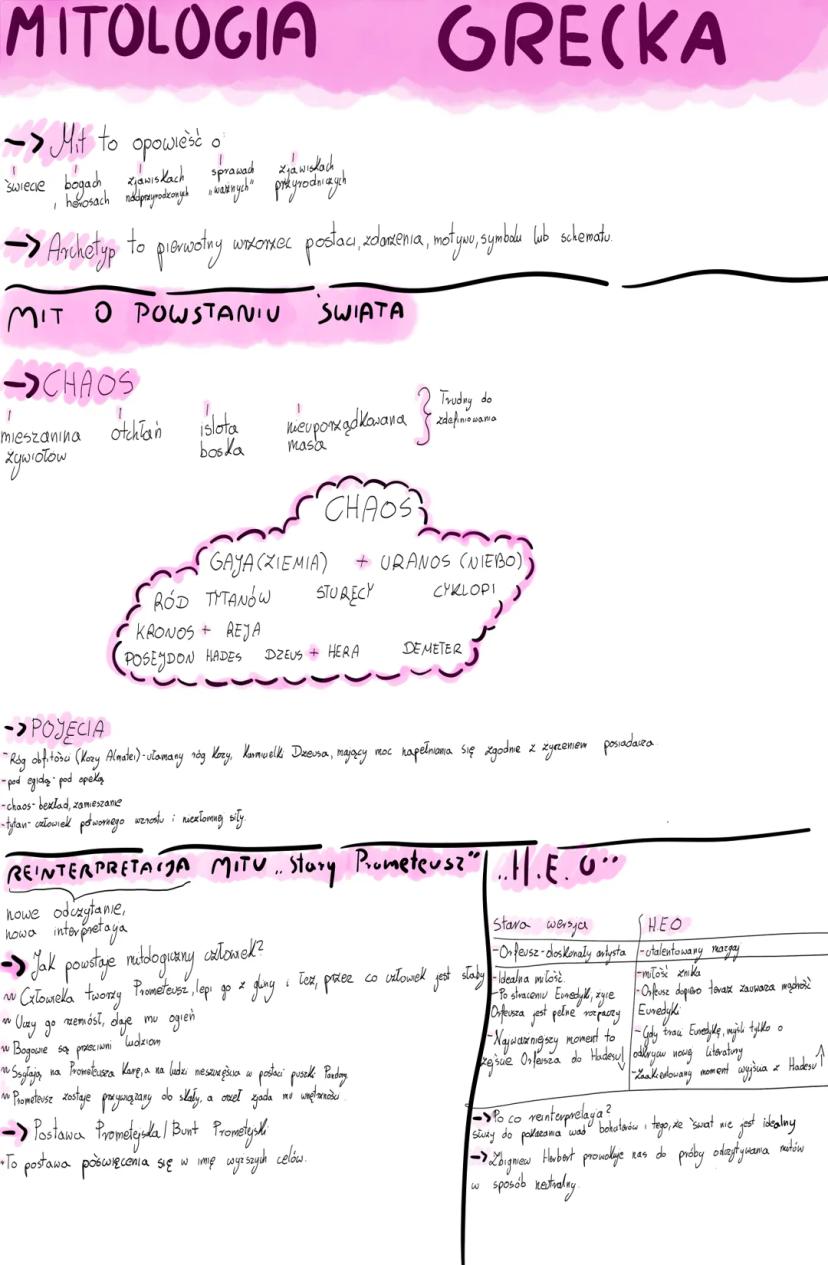 MITOLOGIA GRECKA
-> Mit to opowieść o:
świecie bogach, herosach zjawiskach nadprzyrodzonych sprawach "ważnych" zjawiskach przyrodniczych
-> Archetyp to pierwotny wzorzec postaci, zdarzenia, motywu, symbolu lub schematu.
MIT O POWSTANIU ŚWIATA
-> CHAOS
mieszanina żywiołów otchłań istota boska nieuporządkowana masa } Trudny do zdefiniowania
CHAOS
GAJA (ZIEMIA) + URANOS (NIEBO)
RÓD TYTANÓW STURĘCY CYKLOPI
KRONOS + REJA
POSEJDON HADES DZEUS + HERA DEMETER
-> POJĘCIA
- Róg obfitości (Kozy Almatei) - ułamany róg Kozy, Karmicielki Dzeusa, mający moc napełniania się zgodnie z życzeniem posiadacza.
- pod egidą - pod opeką
- chaos - bezład, zamieszanie
- tytan - człowiek potwornego wzrostu i niezłomnej siły.
REINTERPRETACJA MITU "Stary Prometeusz"
nowe odczytanie,
nowa interpretacja
-> Jak powstaje mitologiczny człowiek?
~ Człowieka tworzy Prometeusz, lepi go z gliny i łez, przez co człowiek jest słaby
~ Uczy go rzemiósł, daje mu ogień
~ Bogowie są przeciwni ludziom
~ Zsyłają na Prometeusza Karę, a na ludzi nieszczęścia w postaci puszki Pandory.
~ Prometeusz zostaje przywiązany do skały, a orzeł zjada mu wnętrzności.
-> Postawa Prometejska / Bunt Prometejski
• To postawa poświęcenia się w imię wyższych celów.
"H.E.O"
Stara wersja H.E.O
- Orfeusz - doskonały artysta - utalentowany mazgaj
- Idealna miłość. - miłość znika
- Po straceniu Eurydyki, życie - Orfeusz dopiero teraz zauważa mądrość
Orfeusza jest pełne rozpaczy Eurydyki
- Najważniejszy moment to - Gdy traci Eurydykę, myśli tylko o
zejście Orfeusza do Hadesu ↓ odkryciu nowej literatury
- Zaakcentowany moment wyjścia z Hadesu ↑
-> Po co reinterpretacja?
służy do pokazania wad bohaterów i tego, że świat nie jest idealny
-> Zbigniew Herbert prowokuje nas do próby odczytywania mitów
w sposób neutralny.